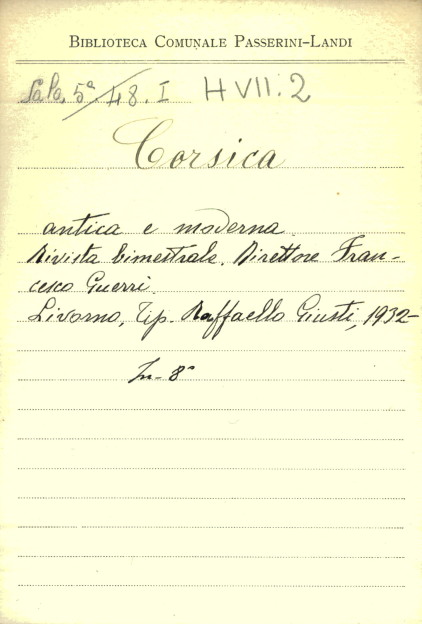 BIBLIOTECA COMUNALE PASSERINI-LANDI
Sala 5ª 48. I H VII. 2
Corsica
antica e moderna.
Rivista bimestrale. Direttore Fran-
cesco Guerri.
Livorno, Tip. Raffaello Giusti, 1932-
In-8°